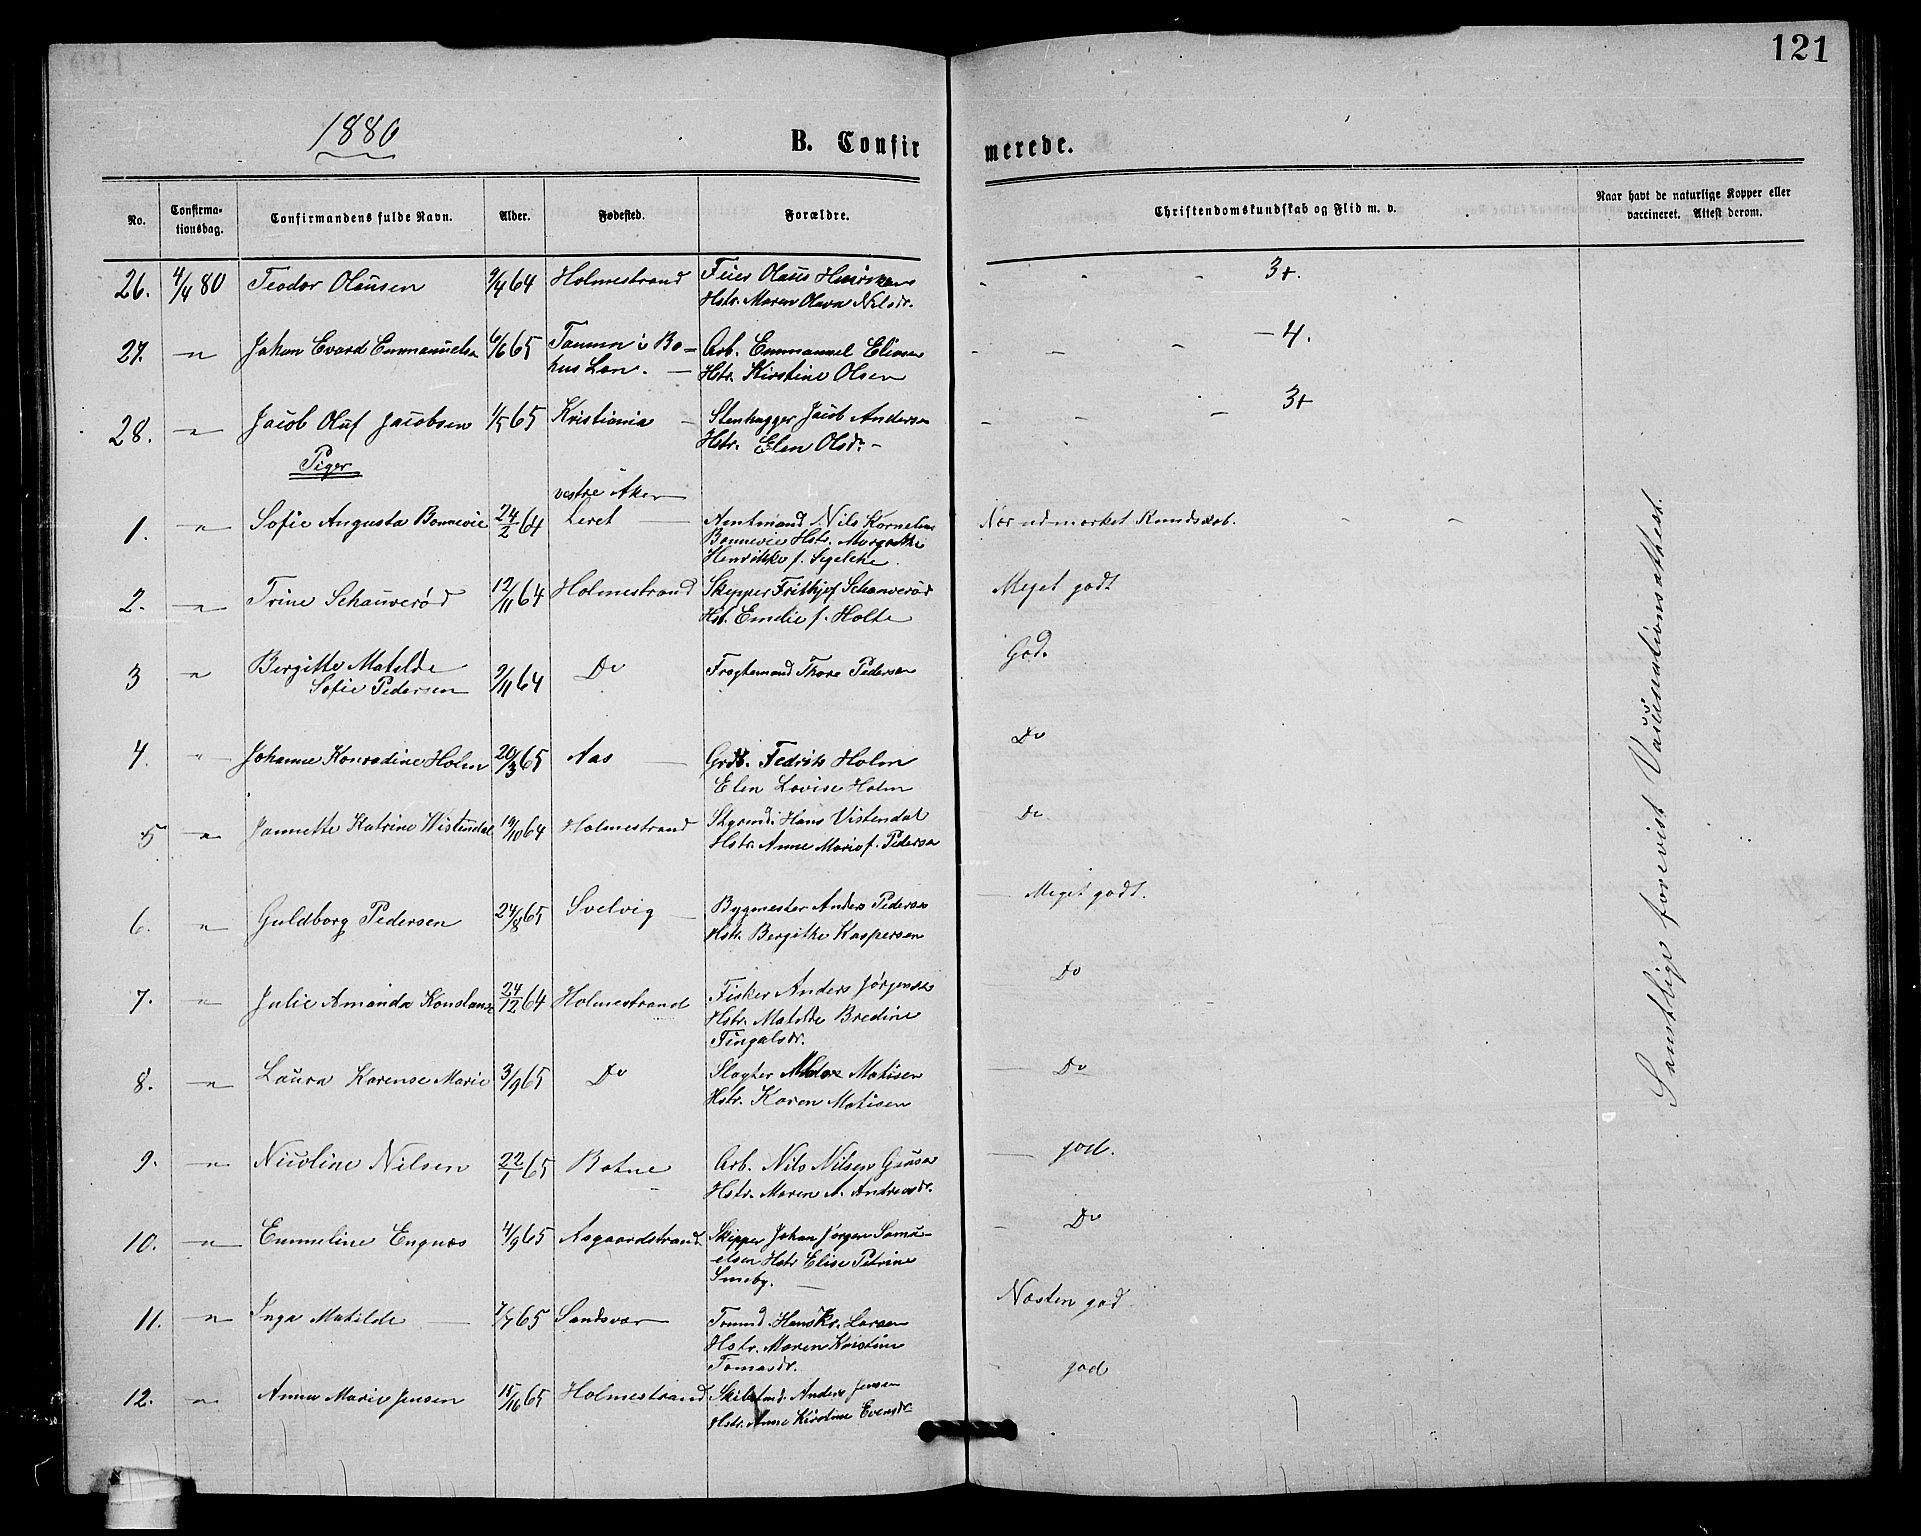 121
1880
B. Confirmerede.
No. Confirmationsdag. Confirmandens fulde Navn. Alder. Fødested. Forældre. Christendomskundskab og Flid m. v. Naar havt de naturlige Kopper eller vaccineret. Attest derom.
26. 4/4 80 Teodor Olausen 9/4 64 Holmestrand Feier Olaus 3+.
Hstr. Maren Olava Nilsdr.
27. " Johan Evard Emmanuelsen 6/6 65 Tanum i Bo- Arb. Emmanuel Eliasen 4.
hus Len. Hstr. Kirstine Olsen
28. " Jacob Oluf Jacobsen 1/5 65 Kristiania Stenhugger Jacob Andersen 3+
Hstr. Elen Olsdr.
Piger
vestre Aker
1. " Sofie Augusta Bonnevie 24/2 64 Leret Amtmand Nils Kornelius Nær udmærket Kundskab.
Bonnevie Hstr. Margrethe
Henrikke f. Segelcke.
2. " Trine Schauverød 12/11 64 Holmestrand Skipper Frithjof Schauverød Meget godt
Hst. Emilie f. Holte
3 " Bergitte Matilde 9/11 64 Do Fragtemand Thore Pedersen God.
Sofie Pedersen
4. " Johanne Konradine Holm 20/3 65 Aas Grdb. Fedrik Holm Do
Elen Lovise Holm
5 " Jannette Katrine Wistendal 19/10 64 Holmestrand Hans Vistendal Do
Hstr. Anne Marie f. Pedersen
6. " Guldborg Pedersen 24/8 65 Svelvig Bygmester Anders Pedersen Meget godt.
Hstr. Bergithe Kaspersen
7. " Julie Amanda Konstance 24/12 64 Holmestrand Fisker Anders Jørgensen Do
Hstr. Matilde Bredine
Tingalsdr.
8. " Laura Karense Marie 3/9 65 Do Slagter Matisen Do
Hstr. Karen Matisen
9. " Nicoline Nilsen 22/1 65 Botne Arb. Nils Nilsen god.
Hstr. Maren A. Andreasdr.
10. " Emmeline Engnæs 4/9 65 Aasgaardstrand Skipper Johan Jørgen Samu- Do
elsen Hstr Elise Petrine
Smeby.
11. " Inga Matilde 7/7 65 Sandsvær Tomtmd. Hans Kr. Larsen Næsten god
Hstr. Maren Kirstine
Tomasdr.
12. " Anna Marie Jensen 15/6 65 Holmestrand Anders Jensen god
Hstr. Anne Kirstine Evensdr
Samtlige forevist Vaccinationsattest.